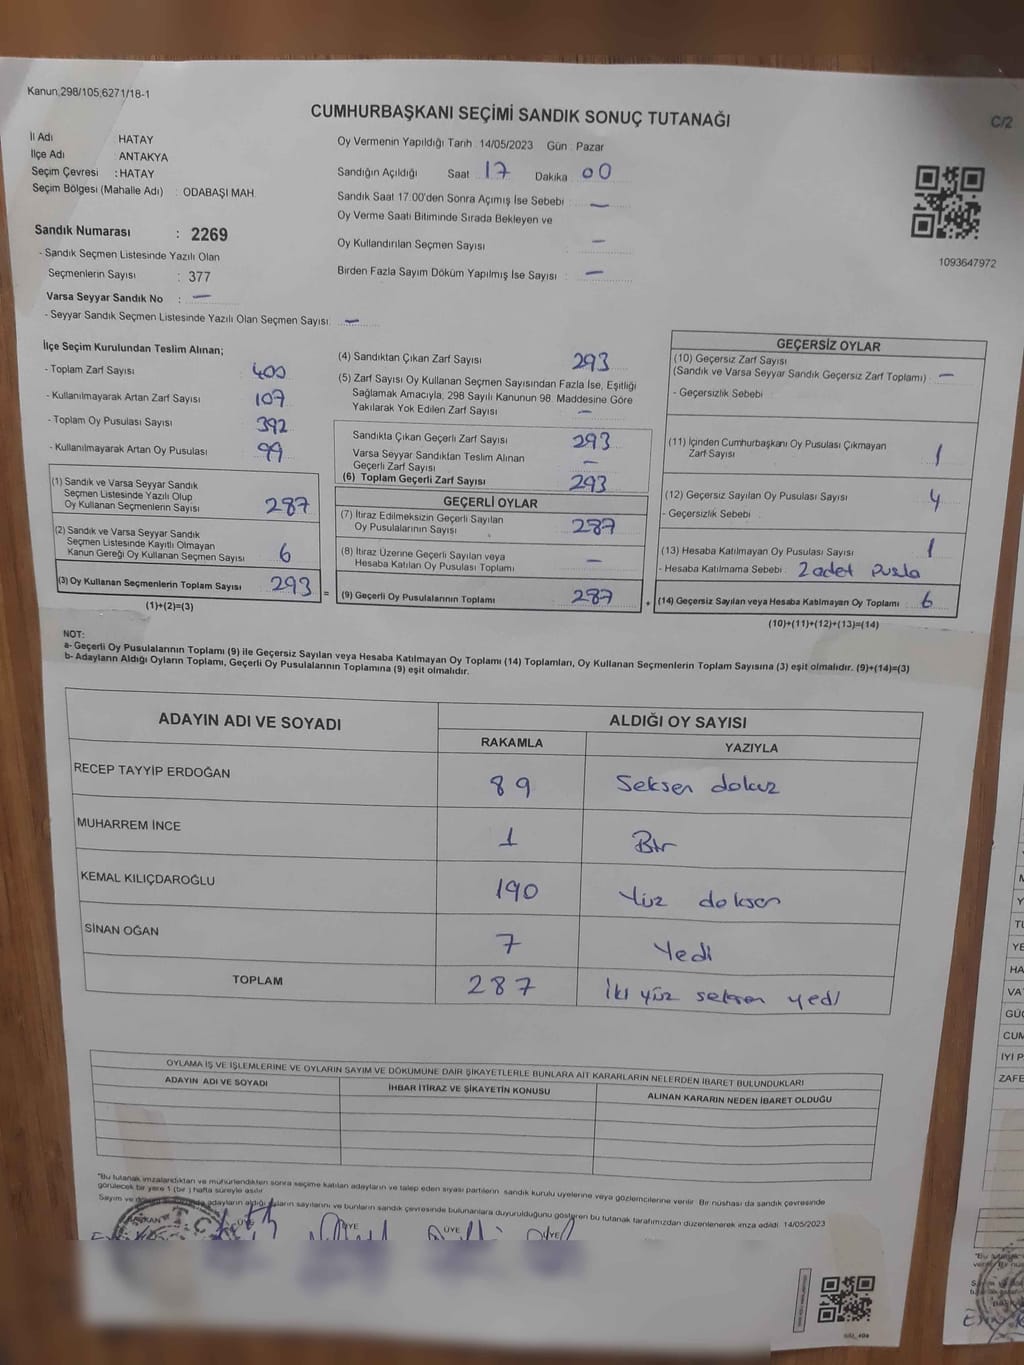 Kanun:298/105,6271/18-1
CUMHURBAŞKANI SEÇİMİ SANDIK SONUÇ TUTANAĞI
C/2
İl Adı : HATAY
İlçe Adı : ANTAKYA
Seçim Çevresi : HATAY
Seçim Bölgesi (Mahalle Adı) : ODABAŞI MAH.
Oy Vermenin Yapıldığı Tarih 14/05/2023 Gün : Pazar
Sandığın Açıldığı Saat 17 Dakika 00
Sandık Saat 17:00'den Sonra Açımış İse Sebebi : —
Oy Verme Saati Bitiminde Sırada Bekleyen ve
Oy Kullandırılan Seçmen Sayısı : —
Birden Fazla Sayım Döküm Yapılmış İse Sayısı : —
1093647972
Sandık Numarası : 2269
- Sandık Seçmen Listesinde Yazılı Olan
Seçmenlerin Sayısı : 377
Varsa Seyyar Sandık No : —
- Seyyar Sandık Seçmen Listesinde Yazılı Olan Seçmen Sayısı: —
İlçe Seçim Kurulundan Teslim Alınan;
- Toplam Zarf Sayısı 400
- Kullanılmayarak Artan Zarf Sayısı 107
- Toplam Oy Pusulası Sayısı 392
- Kullanılmayarak Artan Oy Pusulası 99
(1) Sandık ve Varsa Seyyar Sandık
Seçmen Listesinde Yazılı Olup
Oy Kullanan Seçmenlerin Sayısı 287
(2) Sandık ve Varsa Seyyar Sandık
Seçmen Listesinde Kayıtlı Olmayan
Kanun Gereği Oy Kullanan Seçmen Sayısı 6
(3) Oy Kullanan Seçmenlerin Toplam Sayısı 293 =
(1)+(2)=(3)
(4) Sandıktan Çıkan Zarf Sayısı 293
(5) Zarf Sayısı Oy Kullanan Seçmen Sayısından Fazla İse, Eşitliği
Sağlamak Amacıyla, 298 Sayılı Kanunun 98. Maddesine Göre
Yakılarak Yok Edilen Zarf Sayısı —
Sandıkta Çıkan Geçerli Zarf Sayısı 293
Varsa Seyyar Sandıktan Teslim Alınan
Geçerli Zarf Sayısı —
(6) Toplam Geçerli Zarf Sayısı 293
GEÇERLİ OYLAR
(7) İtiraz Edilmeksizin Geçerli Sayılan
Oy Pusulalarının Sayısı 287
(8) İtiraz Üzerine Geçerli Sayılan veya
Hesaba Katılan Oy Pusulası Toplamı —
(9) Geçerli Oy Pusulalarının Toplamı 287 +
GEÇERSİZ OYLAR
(10) Geçersiz Zarf Sayısı
(Sandık ve Varsa Seyyar Sandık Geçersiz Zarf Toplamı) : —
- Geçersizlik Sebebi :
(11) İçinden Cumhurbaşkanı Oy Pusulası Çıkmayan
Zarf Sayısı 1
(12) Geçersiz Sayılan Oy Pusulası Sayısı 4
- Geçersizlik Sebebi :
(13) Hesaba Katılmayan Oy Pusulası Sayısı 1
- Hesaba Katılmama Sebebi : 2 adet pusla
(14) Geçersiz Sayılan veya Hesaba Katılmayan Oy Toplamı 6
(10)+(11)+(12)+(13)=(14)
NOT:
a- Geçerli Oy Pusulalarının Toplamı (9) ile Geçersiz Sayılan veya Hesaba Katılmayan Oy Toplamı (14) Toplamları, Oy Kullanan Seçmenlerin Toplam Sayısına (3) eşit olmalıdır. (9)+(14)=(3)
b- Adayların Aldığı Oyların Toplamı, Geçerli Oy Pusulalarının Toplamına (9) eşit olmalıdır.
ADAYIN ADI VE SOYADI
ALDIĞI OY SAYISI
RAKAMLA YAZIYLA
RECEP TAYYİP ERDOĞAN 89 Seksen dokuz
MUHARREM İNCE 1 Bir
KEMAL KILIÇDAROĞLU 190 Yüz doksan
SİNAN OĞAN 7 Yedi
TOPLAM 287 İki yüz seksen yedi
OYLAMA İŞ VE İŞLEMLERİNE VE OYLARIN SAYIM VE DÖKÜMÜNE DAİR ŞİKAYETLERLE BUNLARA AİT KARARLARIN NELERDEN İBARET BULUNDUKLARI
ADAYIN ADI VE SOYADI İHBAR İTİRAZ VE ŞİKAYETİN KONUSU ALINAN KARARIN NEDEN İBARET OLDUĞU
"Bu tutanak imzalandıktan ve mühürlendikten sonra seçime katılan adayların ve talep eden siyasi partilerin sandık kurulu üyelerine veya gözlemcilerine verilir. Bir nüshası da sandık çevresinde
görülecek bir yere 1 (bir) hafta süreyle asılır.
Sayım ve adayların aldığı oyların sayılarını ve bunların sandık çevresinde bulunanlara duyurulduğunu gösteren bu tutanak tarafımızdan düzenlenerek imza edildi. 14/05/2023
BAŞKAN ÜYE ÜYE ÜYE
M
Y
TÜ
YE
HA
VA
GÜ
CUM
İYİ P
ZAFE